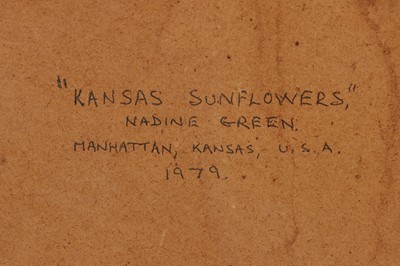 "KANSAS SUNFLOWERS,"
NADINE GREEN.
MANHATTAN, KANSAS, U.S.A.
1979.